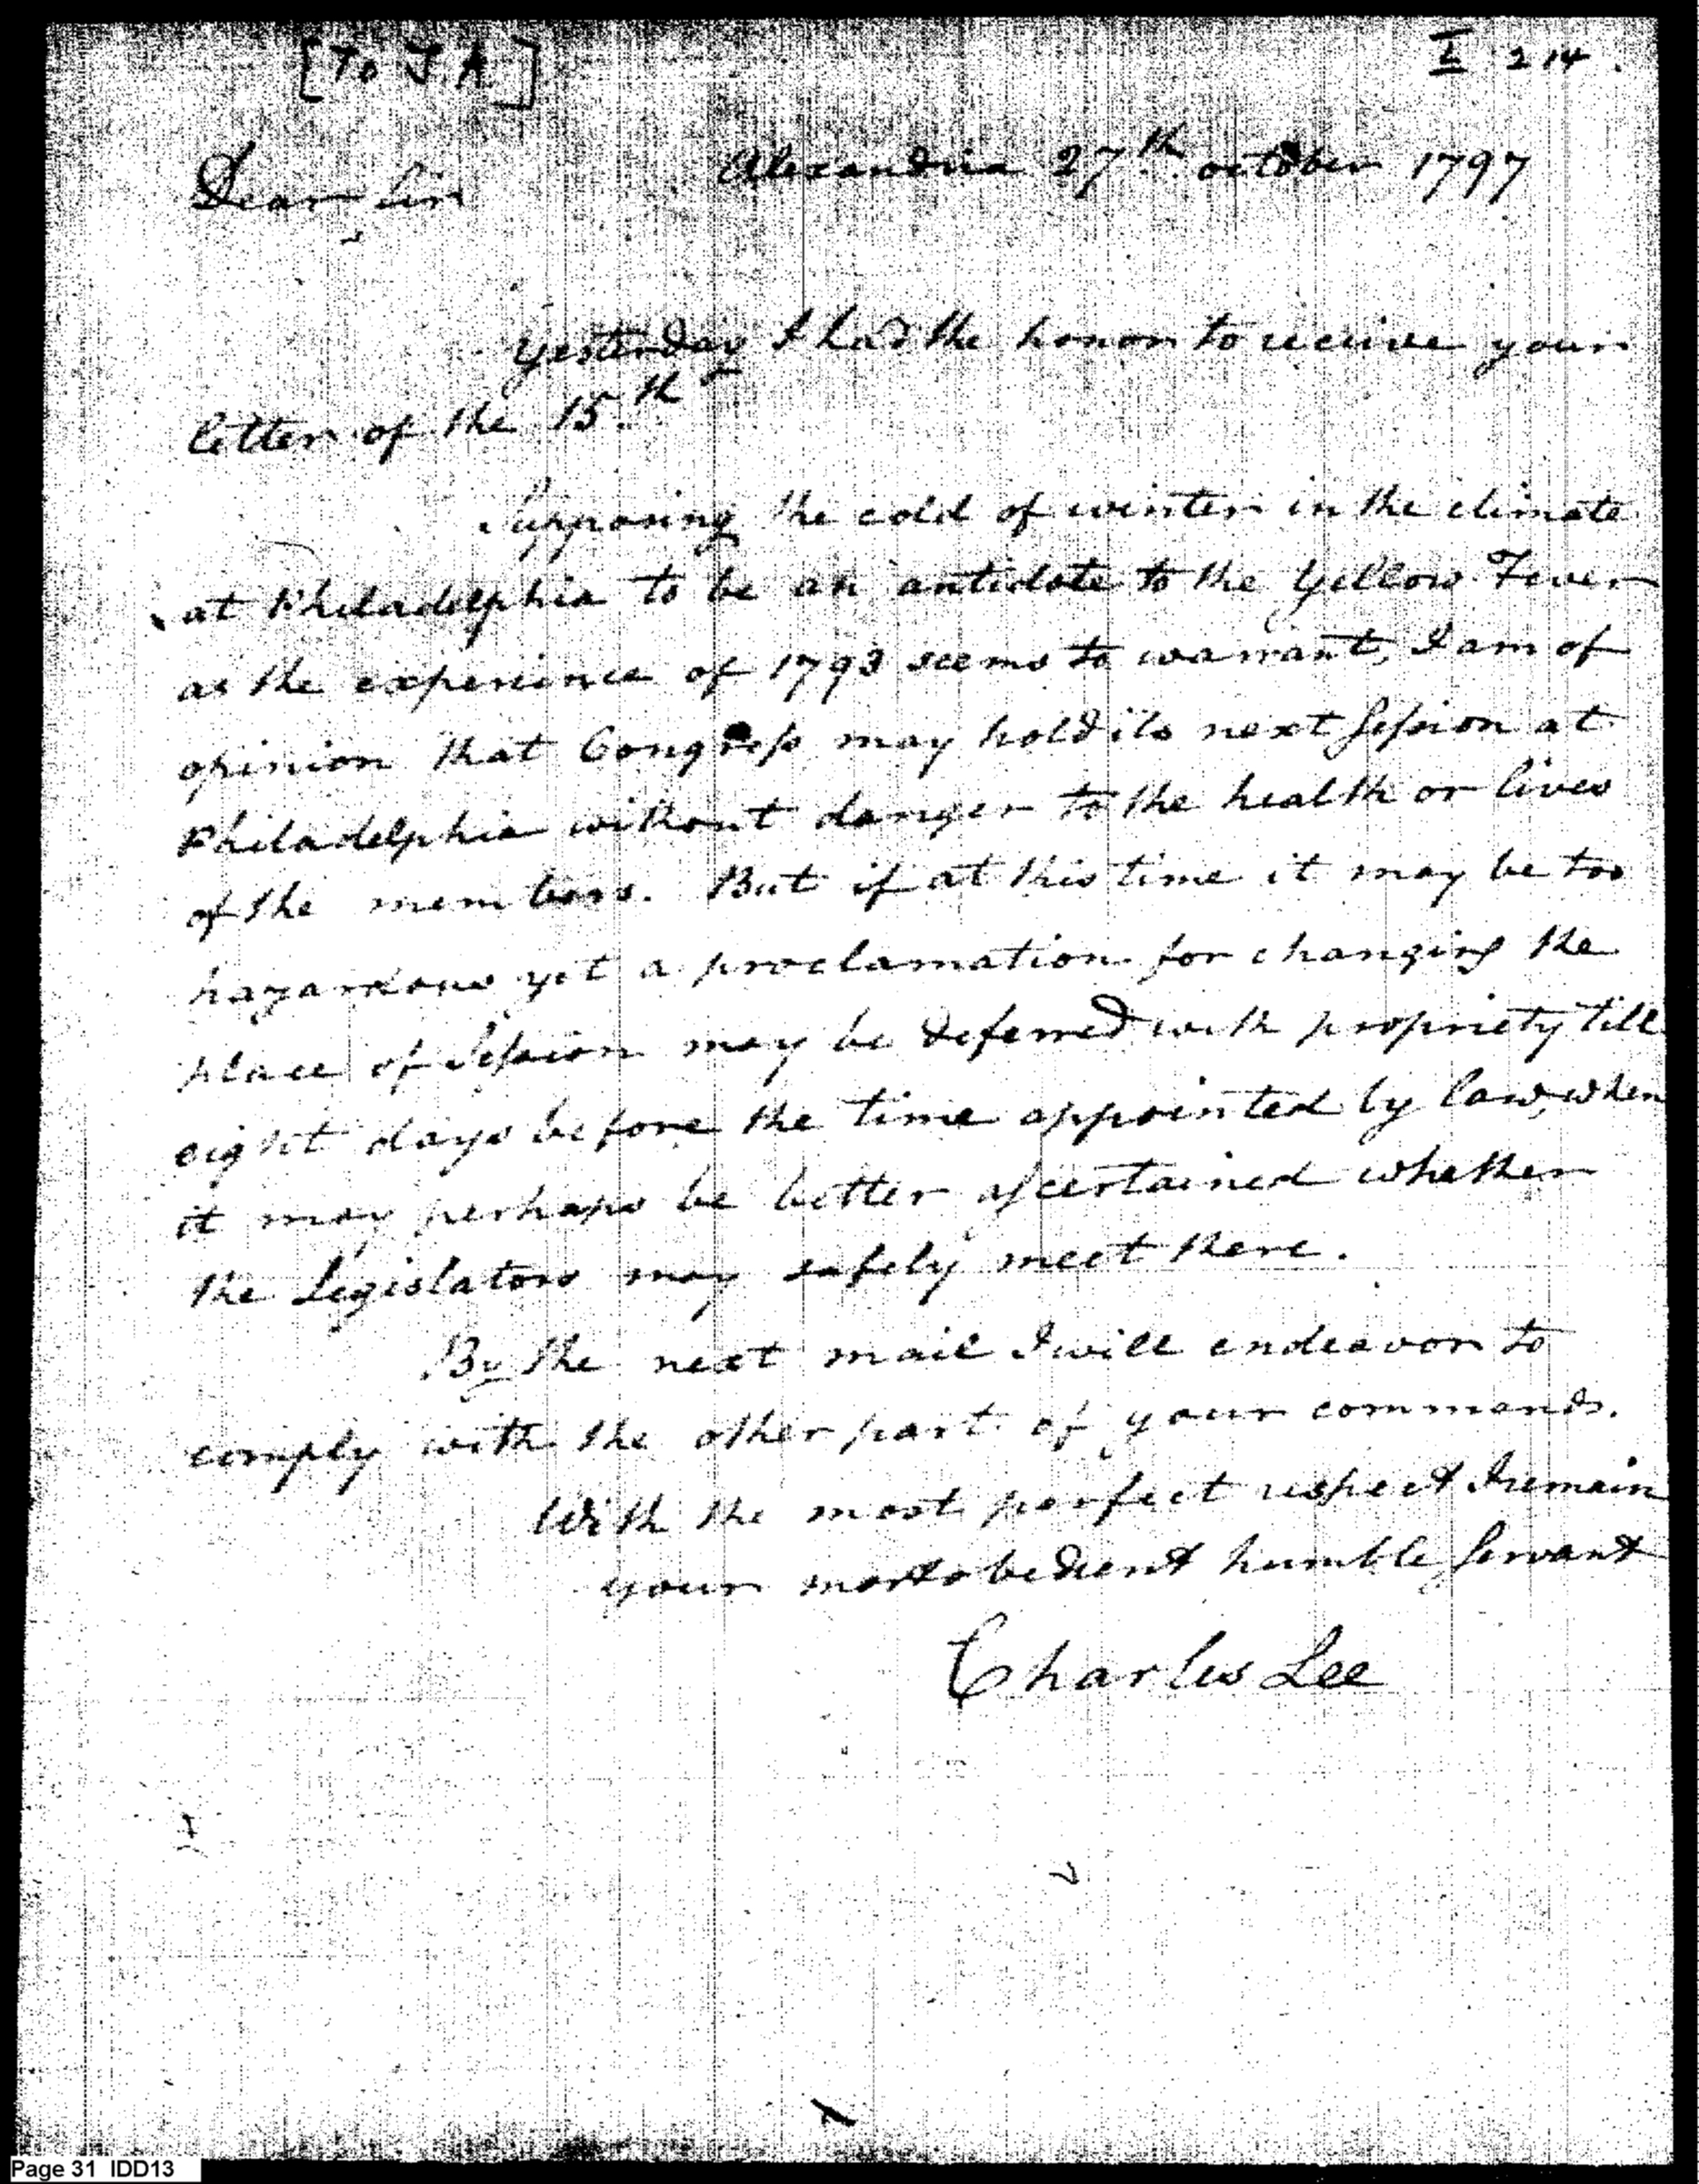 [To J. A.]
I 214.
Alexandria 27th. october 1797
Dear Sir
Yesterday I had the honor to receive your
letter of the 15.th
Supposing the cold of winter in the climate
at Philadelphia to be an antidote to the Yellow Fever
as the experience of 1793 seems to warrant, I am of
opinion that Congress may hold its next Session at
Philadelphia without danger to the health or lives
of the members. But if at this time it may be too
hazardous yet a proclamation for changing the
place of Session may be deferred with propriety till
eight days before the time appointed by law, when
it may perhaps be better ascertained whether
the Legislators may safely meet there.
By the next mail I will endeavor to
comply with the other part of your commands.
With the most perfect respect I remain
your most obedient humble Servant
Charles Lee
Page 31 IDD13